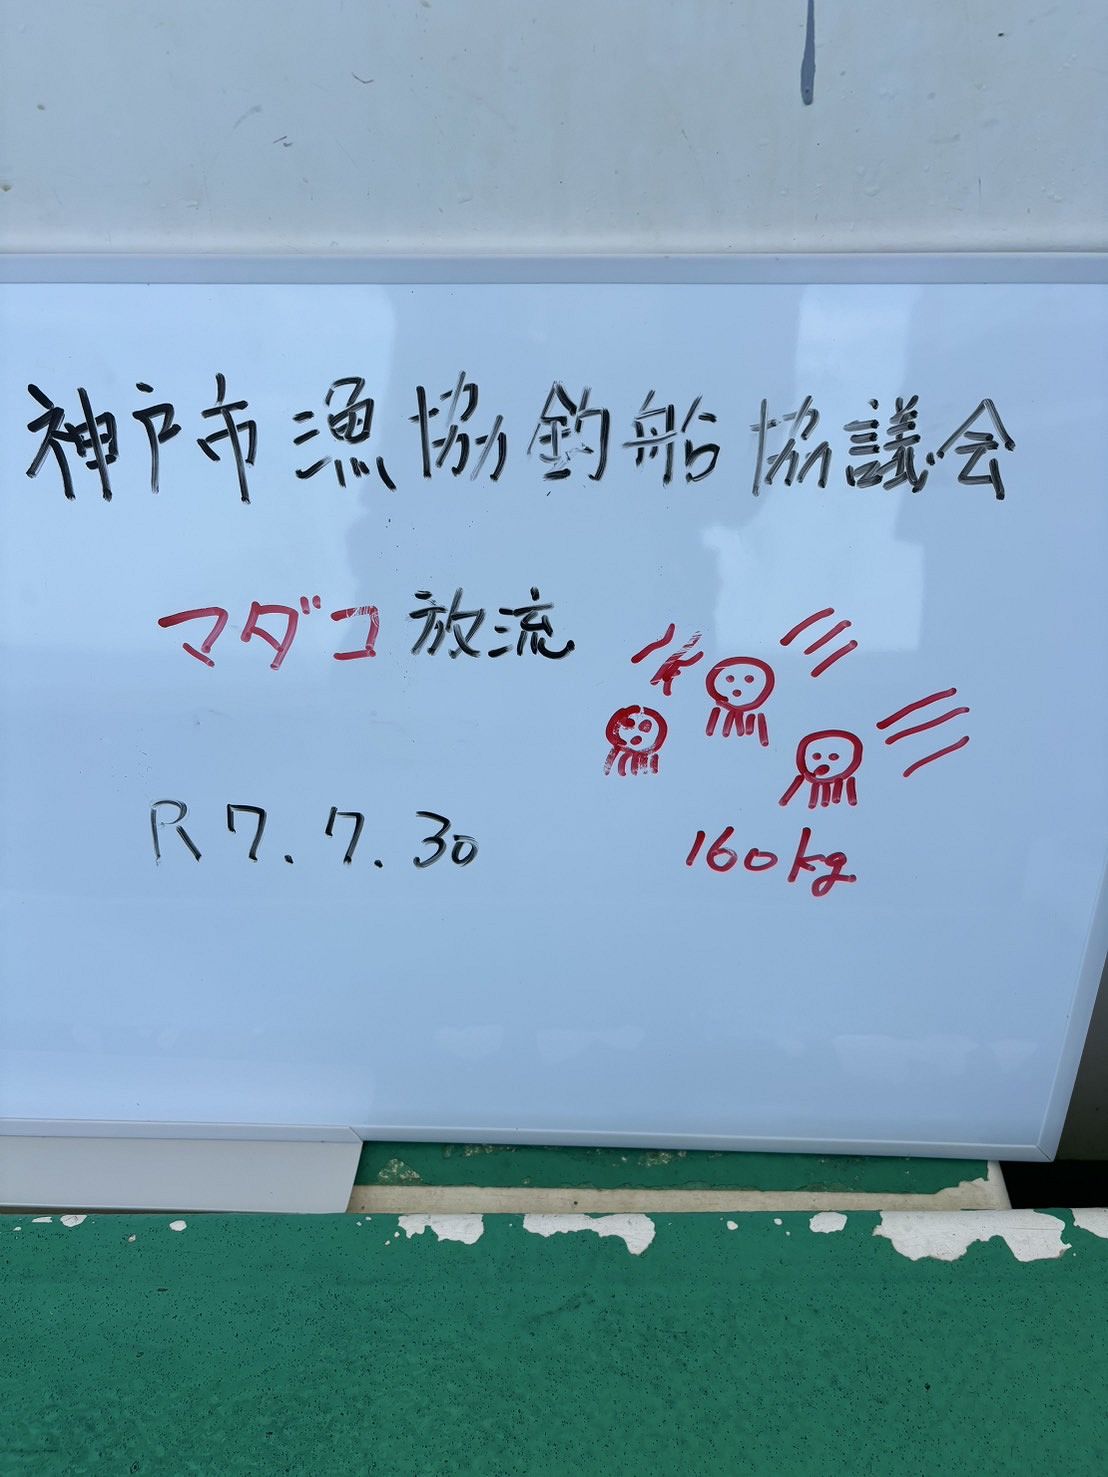 神戸市漁協釣船協議会
マダコ放流
R7.7.30
160kg